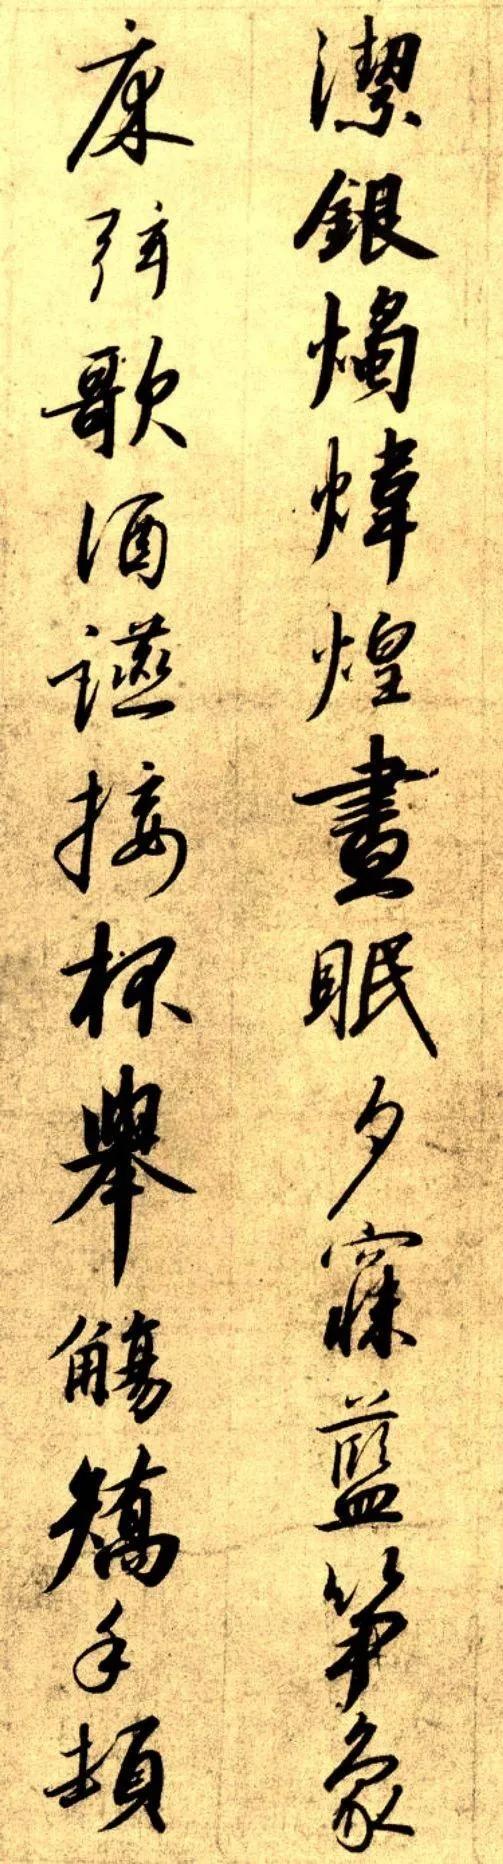 潔銀燭煒煌晝眠夕寐藍笋象
床弦歌酒讌接杯舉觴矯手頓